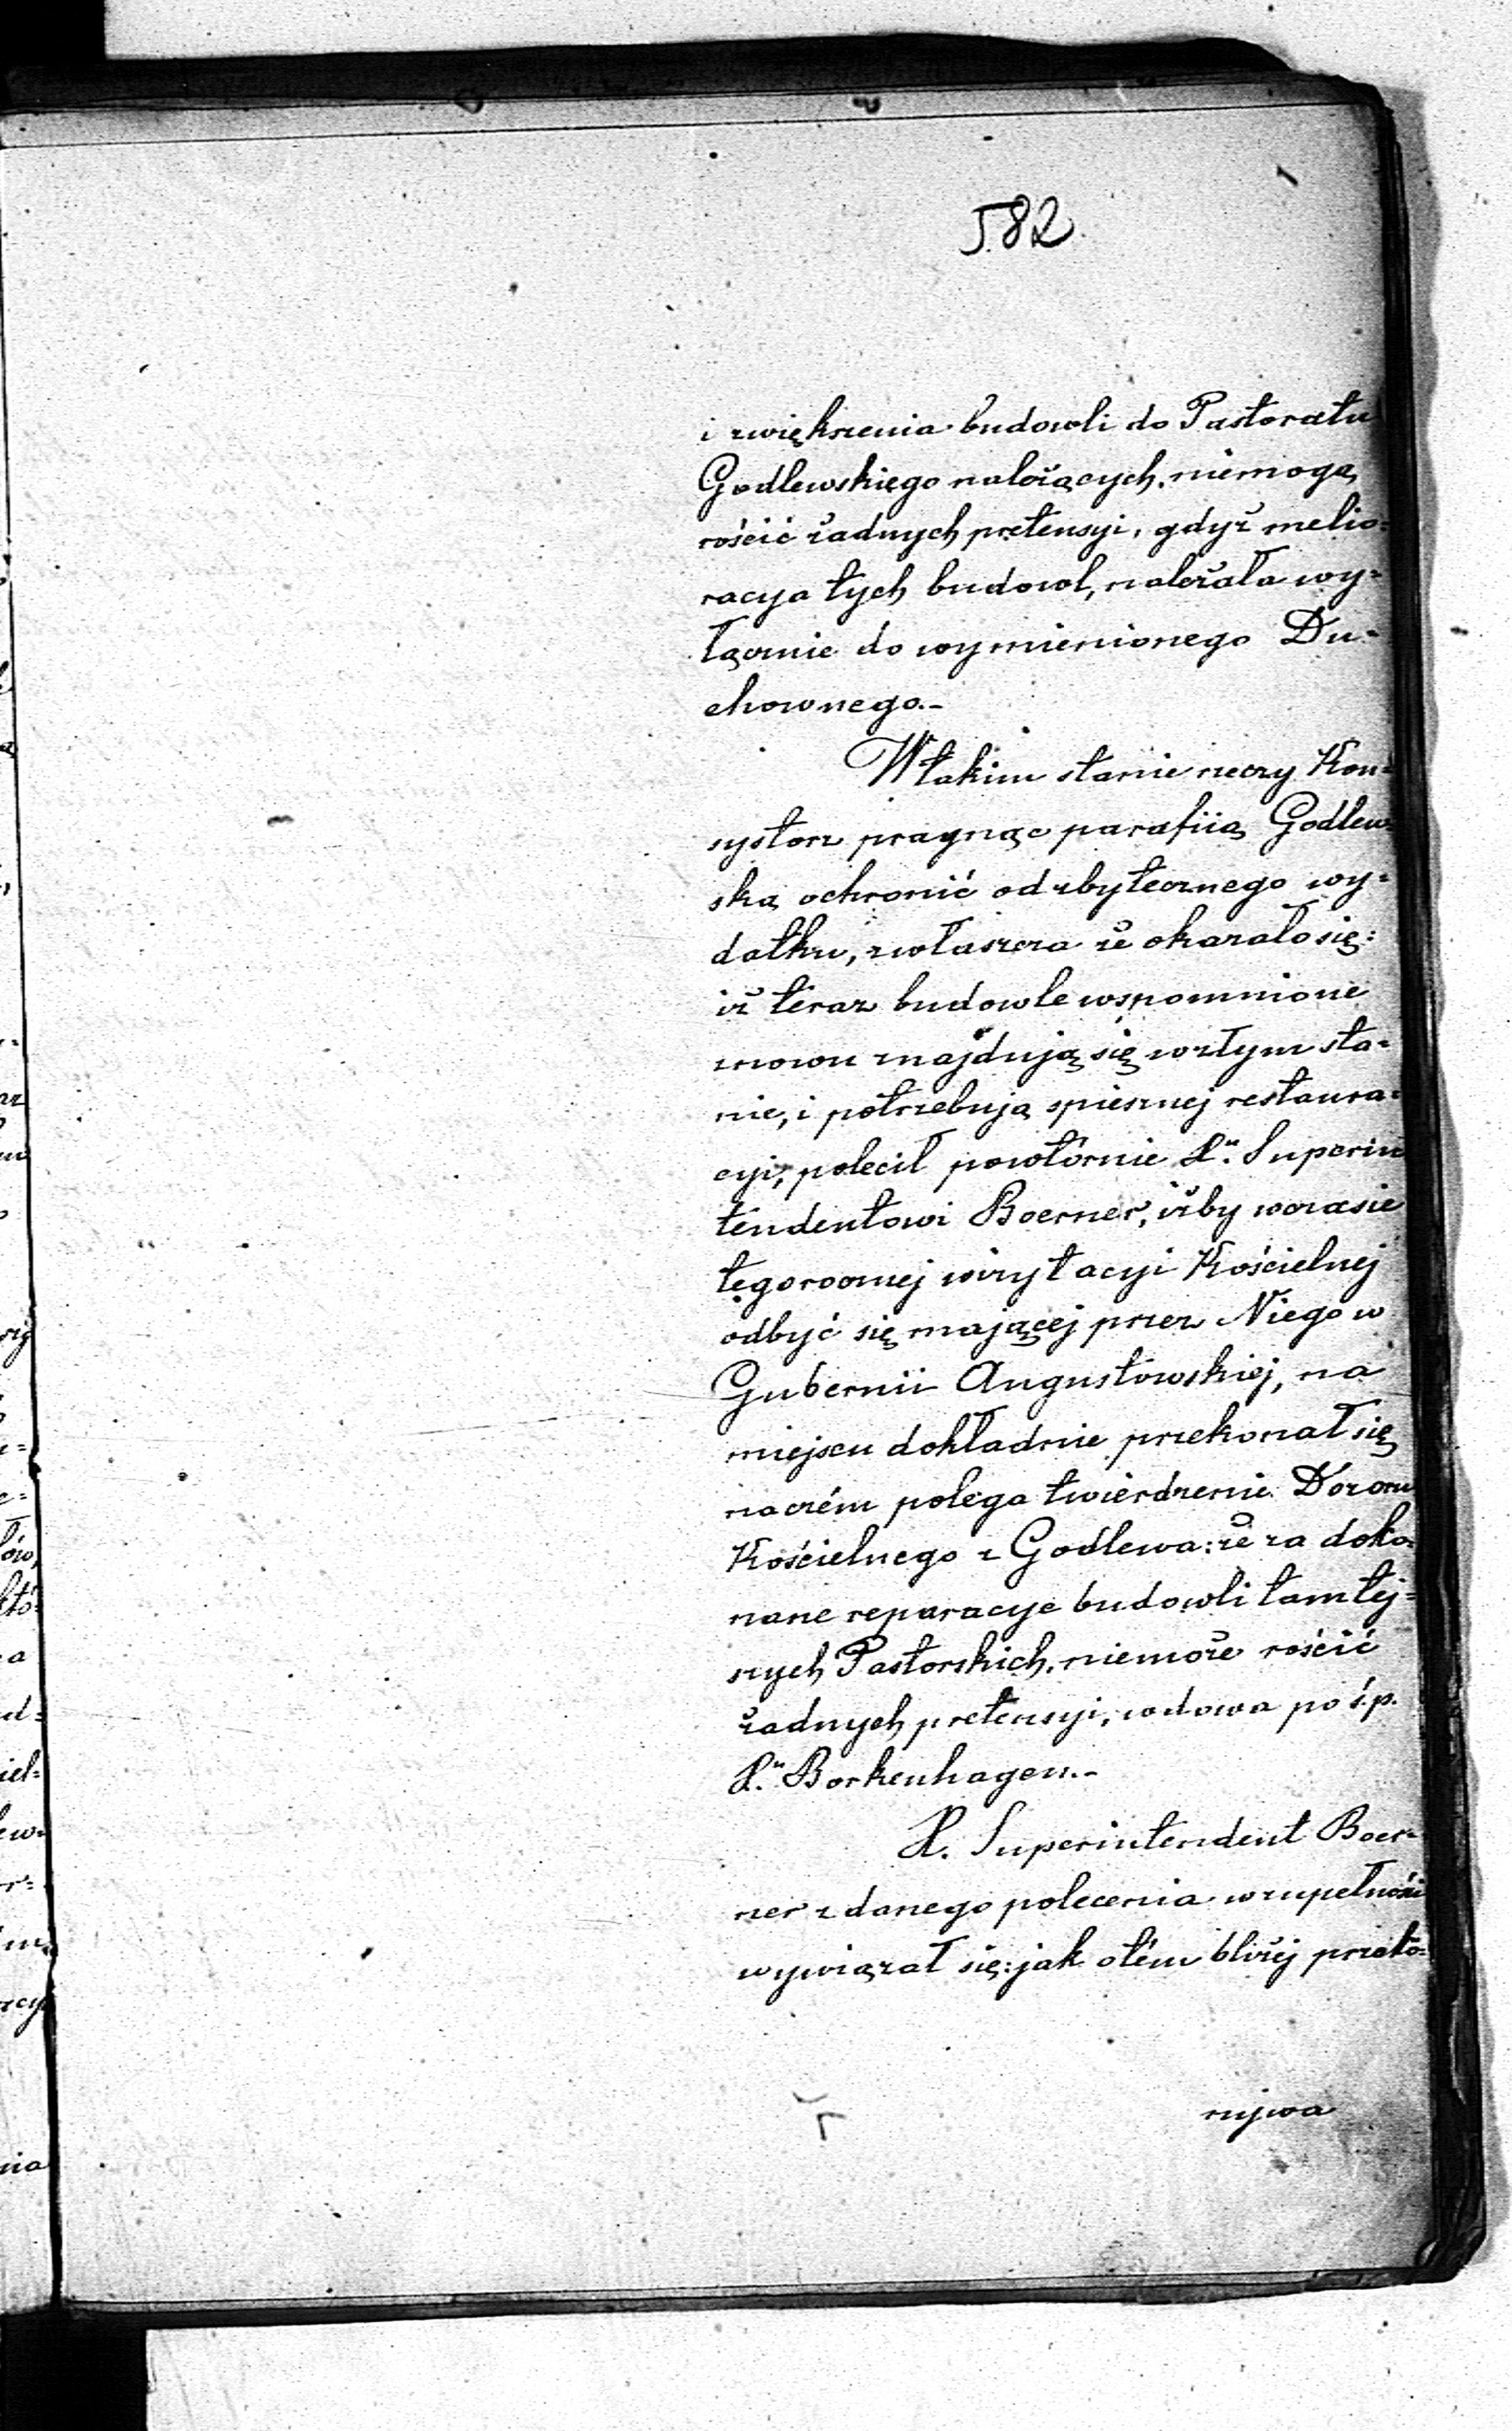 582
i zwiększenia budowli do Pastoratu
Godlewskiego należących, niemogą
rościć żadnych pretensyi, gdyż melio=
racya tych budowl, należała wy=
łącznie do wymienionego Du=
chownego.-
W takim stanie rzeczy Kon=
systorz pragnąc parafiią Godlew=
ską ochronić od zbytecznego wy=
datku, zwłaszcza że okazało się:
iż teraz budowle wspomnione
znowu znajdują się w złym sta=
nie, i potrzebują spiesznej restaura=
cyi, polecił powtórnie X. Superin
tendentowi Boerner, iżby w czasie
tegorocznej wizytacyi Kościelnej
odbyć się mającej przez Niego w
Gubernii Augustowskiej, na
miejscu dokładnie przekonał się
na czém polega twierdzenie Dozoru
Kościelnego z Godlewa: że za doko=
nane reparacye budowli tamtej=
szych Pastorskich, niemoże rościć
żadnych pretensyi, wdowa po ś.p.
X. Borkenhagen.-
X. Superintendent Boer=
ner z danego polecenia w zupełności
wywiązał się: jak o tém bliżej przeko=
nywa